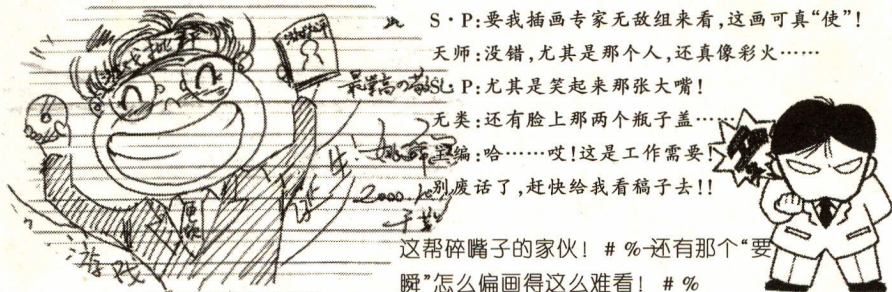 S·P:要我插画专家无敌组来看,这画可真“使”!
天师:没错,尤其是那个人,还真像彩火……
S·P:尤其是笑起来那张大嘴!
无类:还有脸上那两个瓶子盖……
编:哈……哎!这是工作需要!
别废话了,赶快给我看稿子去!!
这帮碎嘴子的家伙! # %-还有那个“要
瞬”怎么偏画得这么难看! # %
游戏批评
最崇高の
2000.
于
游戏